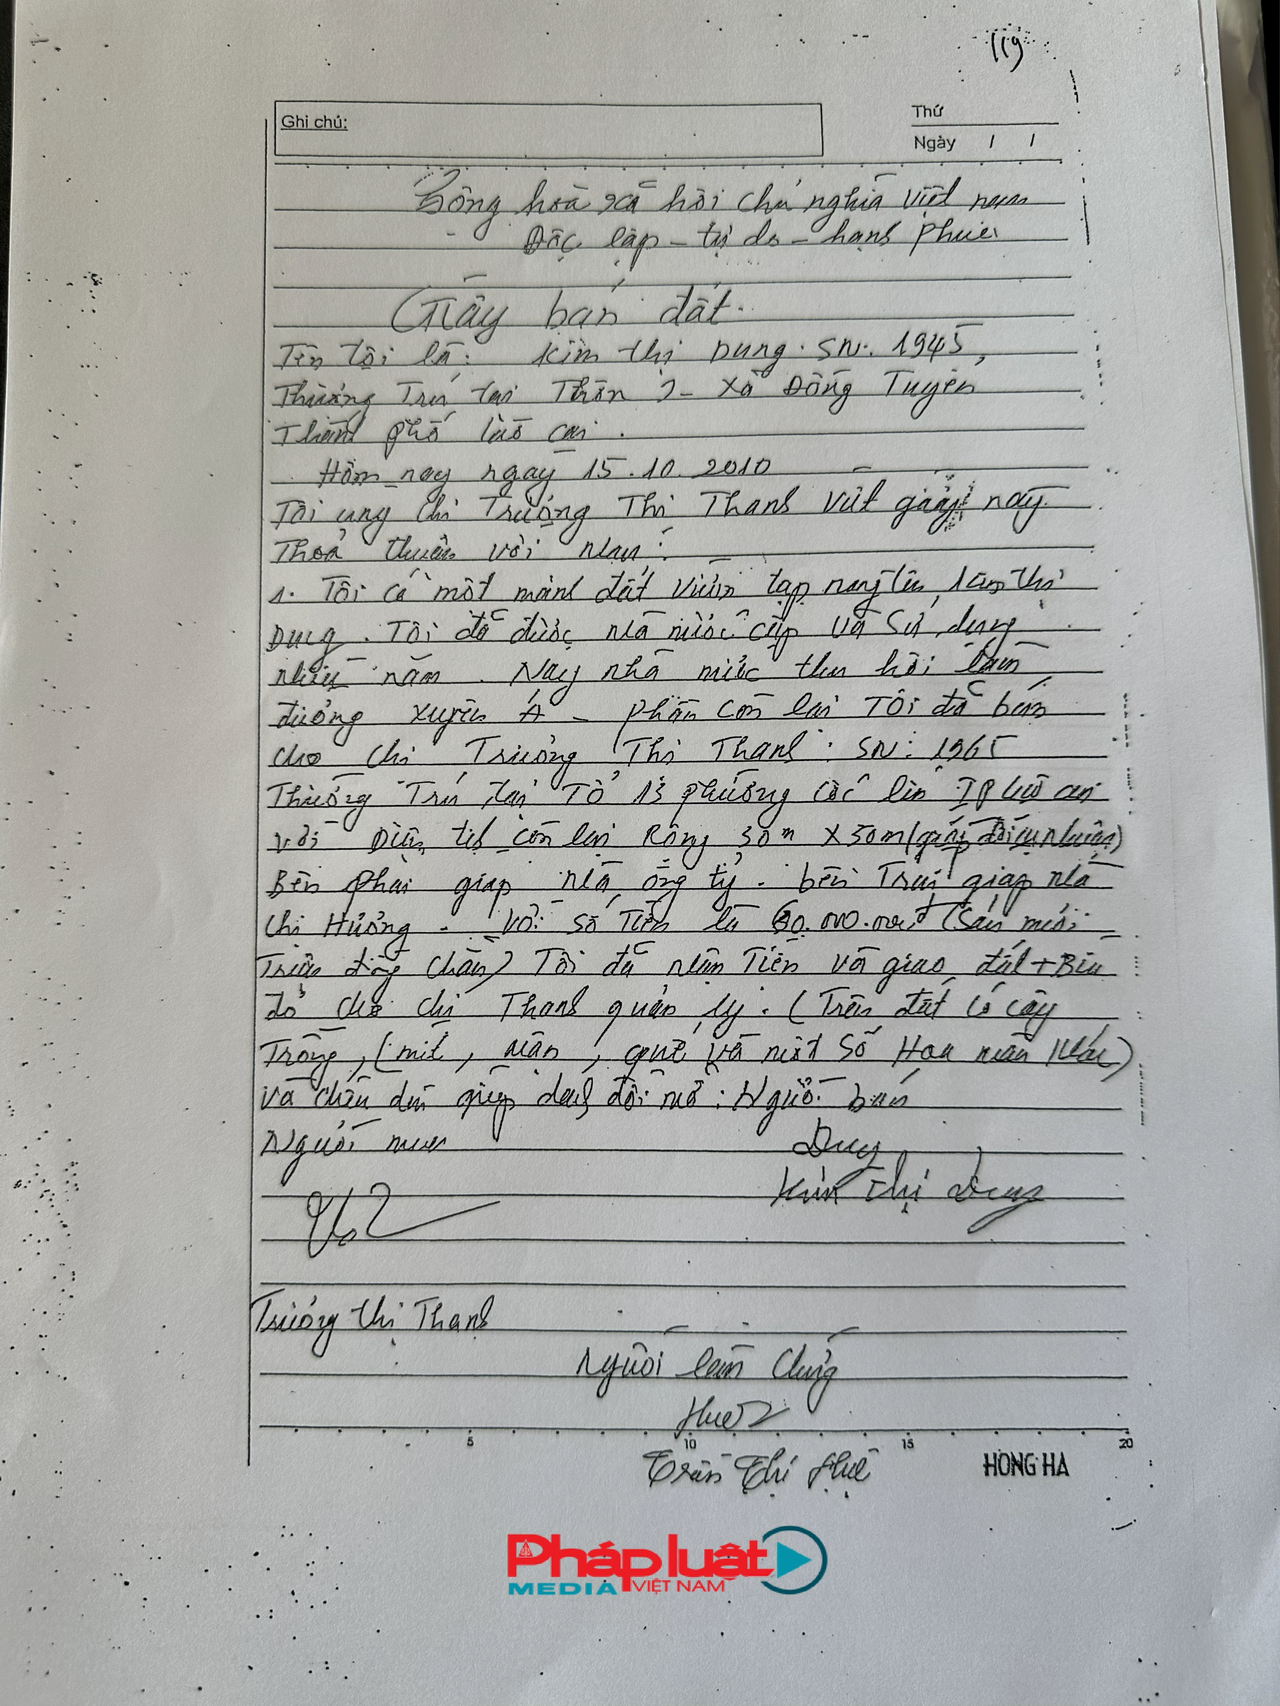 119
Ghi chú:
Thứ
Ngày / /
Cộng hoà xã hội chủ nghĩa Việt nam
Độc lập - tự do - hạnh phúc
Giấy bán đất.
Tên tôi là: Kim thị Dung. SN: 1945,
Thường Trú tại Thôn 2 - Xã Đồng Tuyển
Thành phố Lào cai.
Hôm nay ngày 15.10.2010
Tôi cùng chị Trương Thị Thanh viết giấy này
Thoả thuận với nhau:
1. Tôi có một mảnh đất vườn tạp mang tên Kim thị
Dung. Tôi đã được nhà nước cấp và sử dụng
nhiều năm. Nay nhà nước thu hồi làm
đường xuyên Á - phần còn lại Tôi đã bán
cho chị Trương Thị Thanh: SN: 1965
Thường Trú tại Tổ 13 phường Cốc lếu TP Lào cai
với Diện tích còn lại Rộng 30m x 50m (
Bên phải giáp nhà ông tỷ. bên Trái giáp nhà
chị Hường. Với số Tiền là 60.000.000đ (Sáu mươi
Triệu đồng chẵn) Tôi đã nhận Tiền và giao đất + Bìa
đỏ cho chị Thanh quản lý. (Trên đất có cây
Trồng, (mít, mận, quế và một số Hoa màu khác)
và chữ đổi : Người bán
Người mua
Dung
Kim Thị Dung
Trương thị Thanh
Người làm chứng
Huệ
Trần Thị Huệ
5 10 15 20
HONG HA
Pháp luật
MEDIA VIỆT NAM